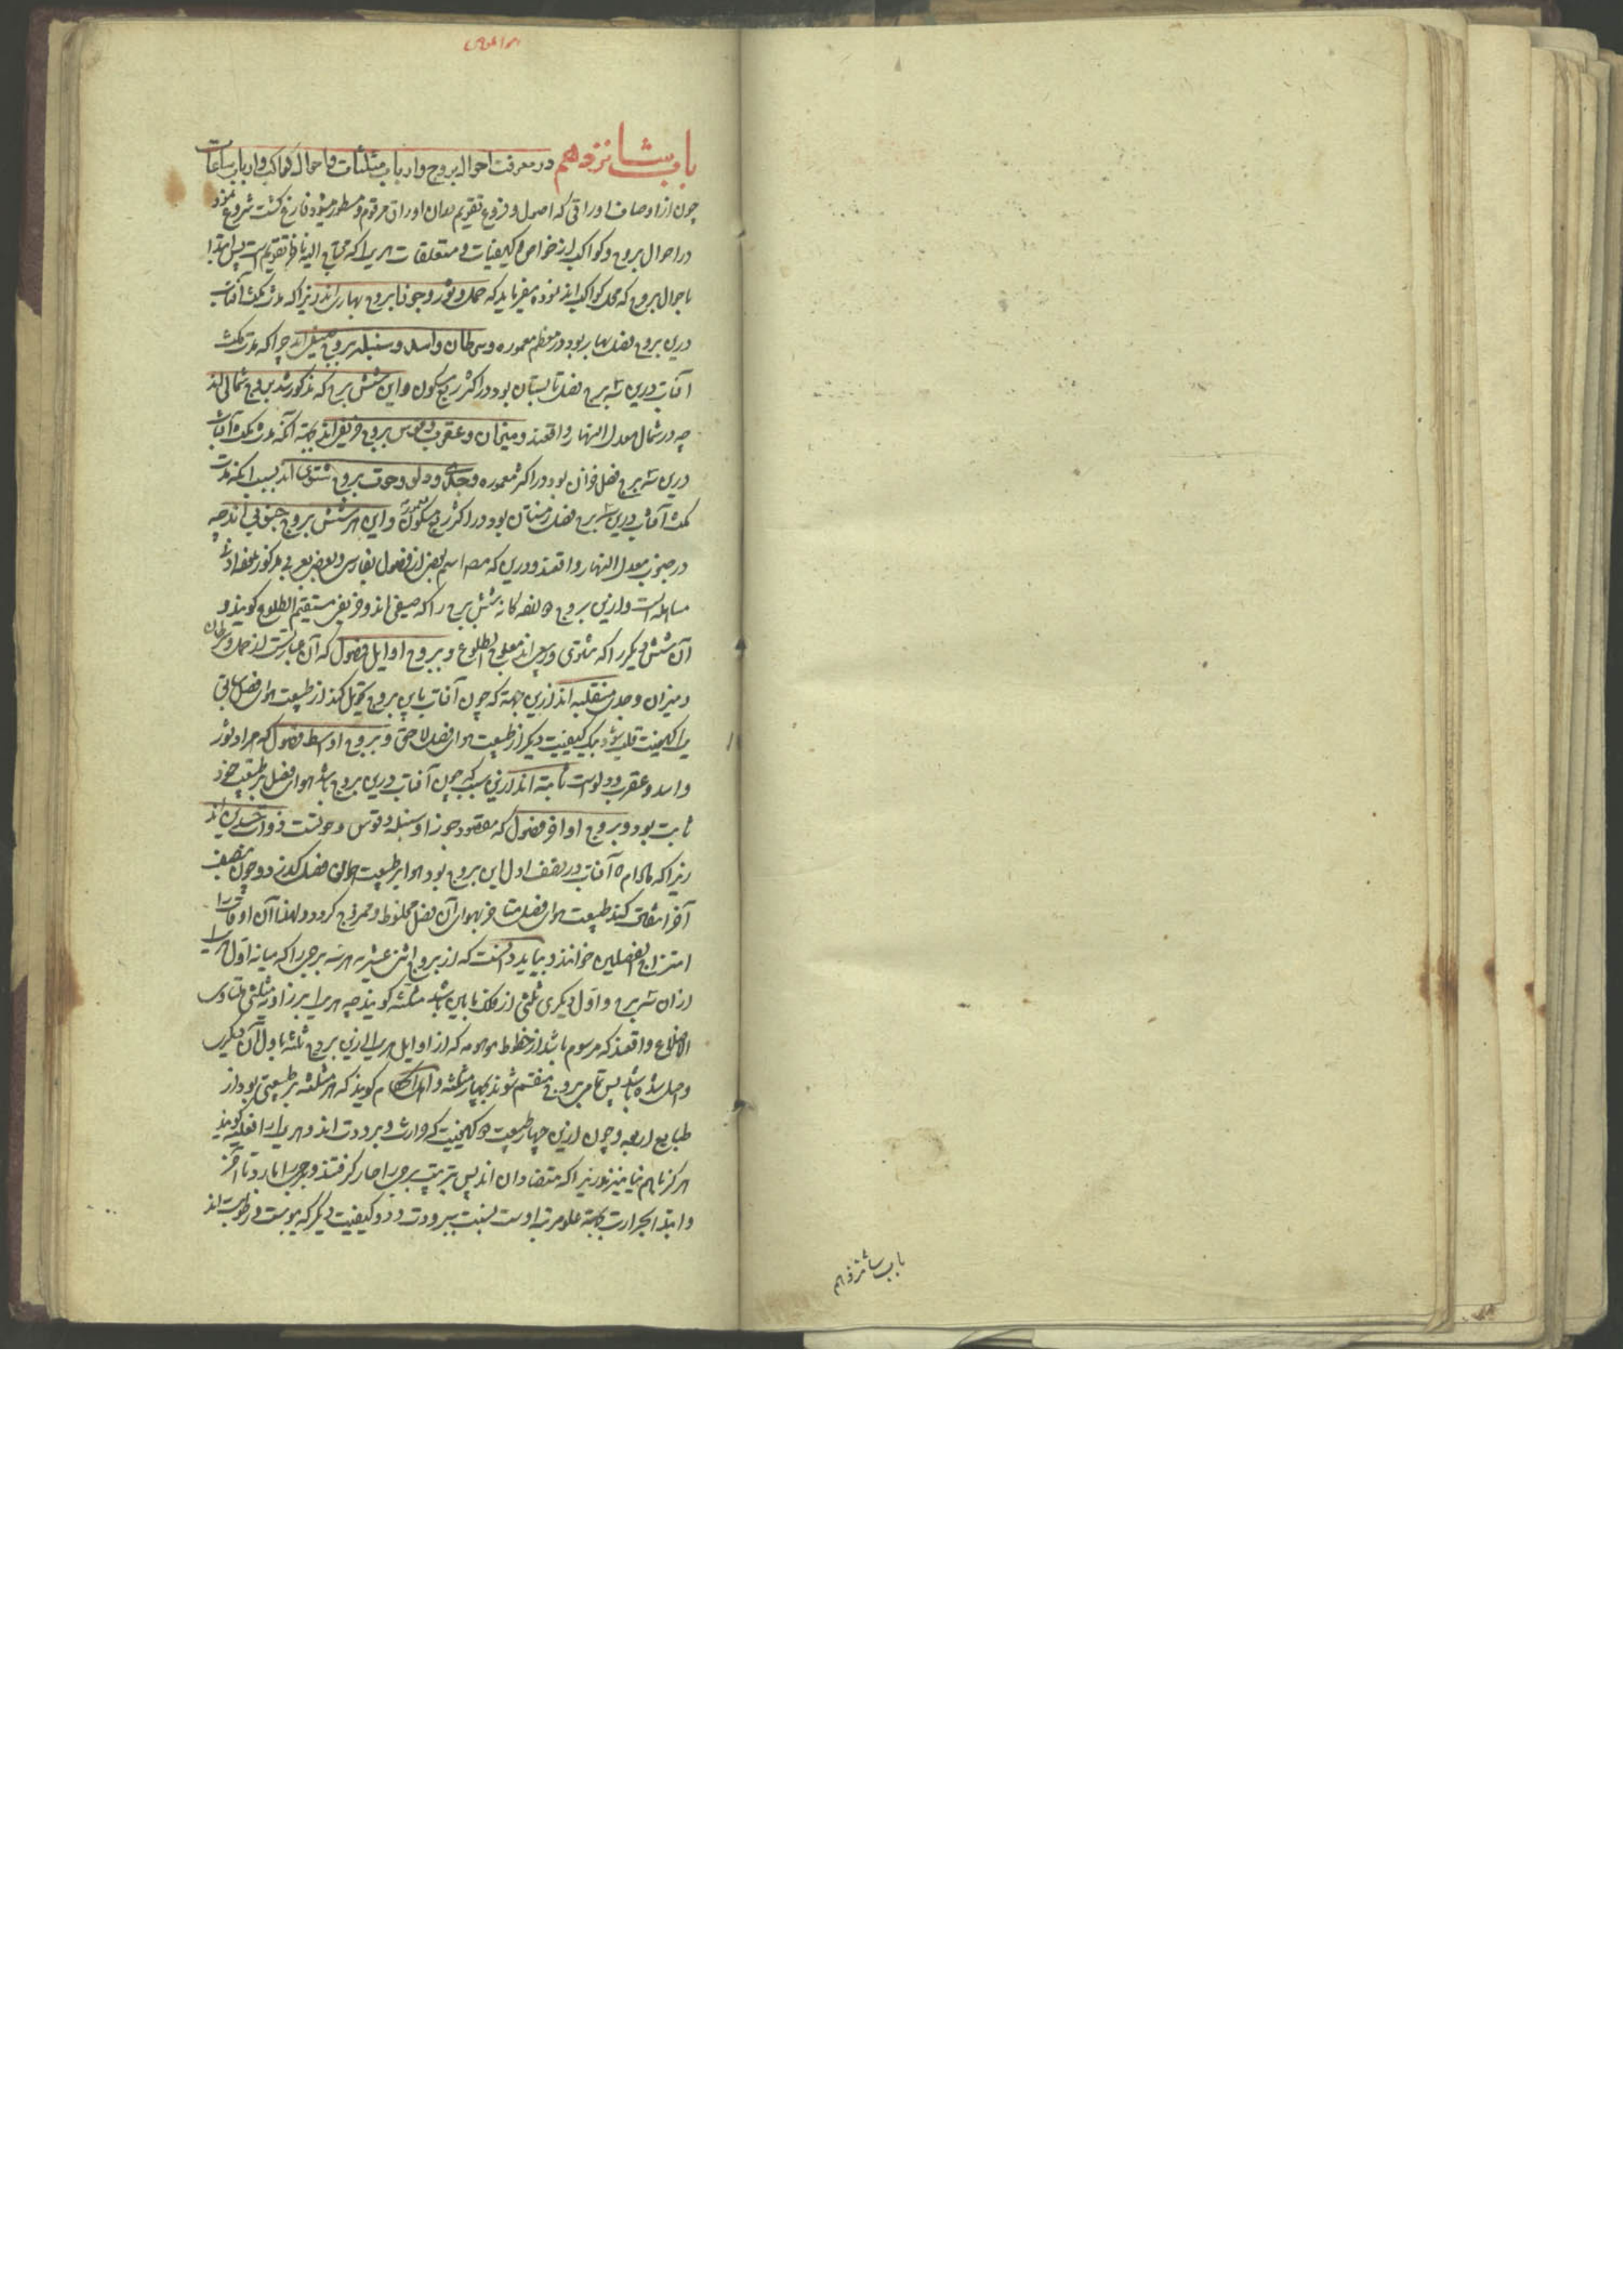 باب شانزدهم در معرفت احوال بروج و ارباب مثلثات و احوال کواکب و ارباب ساعات
چون از اوصاف اوراقی که اصول و فروع تقویم بدان اوراق مرقوم و مسطور میشود فارغ کشت شروع نمود
در احوال بروج و کواکب از خواص و کیفیات و متعلقات هریرا که محتاج الیه ناظر تقویم است پس ابتدا
باحوال بروج که محل کواکب اند نموده میفرماید که حمل و ثور و جوزا بروج بهاری اند زیرا که مدت مکث آفتاب
درین بروج فصل بهار بود در معظم معموره و سرطان و اسد و سنبله بروج صیفی اند چرا که مدت مکث
آفتاب درین سه برج فصل تابستان بود در اکثر ربع مسکون و این شش برج که مذکور شد بروج شمالی اند
چه در شمال معدل النهار واقعند و میزان و عقرب و قوس بروج خریفی اند بجهة آنکه مدت مکث آفتاب
درین سه برج فصل خزان بود در اکثر معموره و جدی و دلو و حوت بروج شتوی اند بسبب آنکه مدت
مکث آفتاب درین سه برج فصل زمستان بود در اکثر ربع مسکون و این هر شش بروج جنوبی اند چه
در جنوب معدل النهار واقعند و درین که مص اسم بعضی از فصول بفارسی و بعضی بعربی مذکور
مساهله است و ازین بروج شش برج را که صیفی اند و خریفی مستقیم الطلوع کویند و
آن شش دیکر را که شتوی و ربیعی اند معوج الطلوع و بروج اوایل فصول که آن عبارتست از حمل و سرطان
و میزان و جدی منقلبه اند ازین جهة که چون آفتاب باین بروج تحویل کند از طبیعت هوای فصل سابق
یک کیفیت قلب شود بیک کیفیت دیکر از طبیعت هوای فصل لاحق و بروج اواسط فصول که مراد ثور
و اسد و عقرب و دلو است ثابته اند ازین سبب که چون آفتاب درین بروج باشد هوای فصل بر طبیعت خود
ثابت بود و بروج اواخر فصول که مقصود جوزا و سنبله و قوس و حوتست ذوات جسدین اند
زیرا که مادام که آفتاب در نصف اول این بروج بود هوا بر طبیعت هوای فصل کذرد و چون بنصف
آخر انتقال کند طبیعت هوای فصل متاخر بهوای آن فصل مخلوط و ممزوج کردد و لهذا آن اوقات را
امتزاج الفصلین خوانند و بباید دانست که از بروج اثنی عشریه هر سه برجی را که میانه اول هریک
ازان سه برج و اول دیکری ثلثی از فلک باشد مثلثه کویند چه هریرا بر زاویه مثلثی متساوی
الاضلاع واقعند که مرسوم باشد از خطوط موهومه که از اوایل هریک ازین بروج ثلثه باول آن دیکری
وصل شده باشد پس تمام بروج منقسم شوند بچهار مثلثه و کویند که هر مثلثه بر طبیعتی بود از
طبایع اربعه و چون ازین چهار طبیعت دو کیفیت که حرارت و برودت اند و هریرا فعلیه کویند
هرکز باهم نیامیزند زیرا که متضادان اند پس بترتیب برجی را حار کرفتند و برجی را بارد تا آخر
و ابتدا بحرارت بجهة علو مرتبه اوست بنسبت ببرودت و دو کیفیت دیکر که یبوست و رطوبت اند
باب شانزدهم